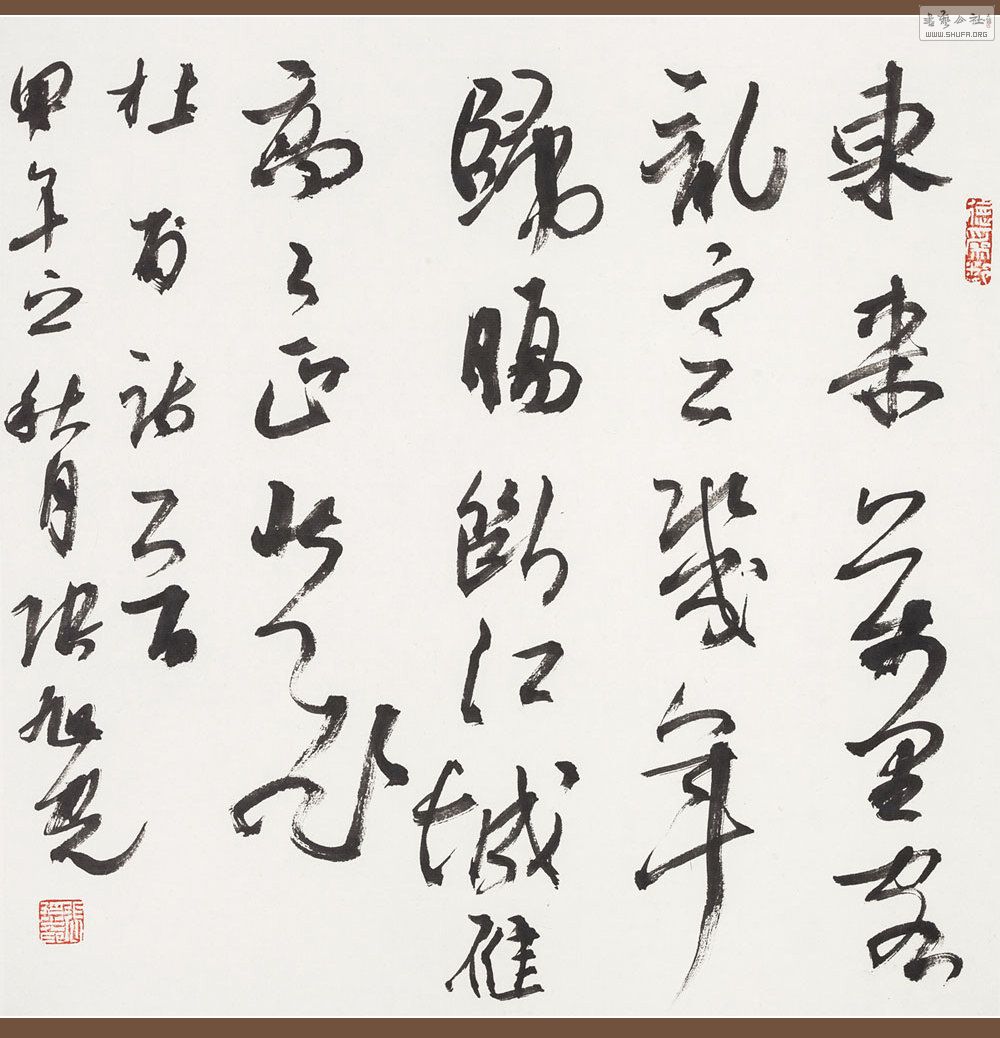 書藝公社
WWW.SHUFA.ORG
東来萬里客
乱定幾年
歸腸斷江城雁
高々正北飛
杜甫詩首
甲午之秋月張旭光